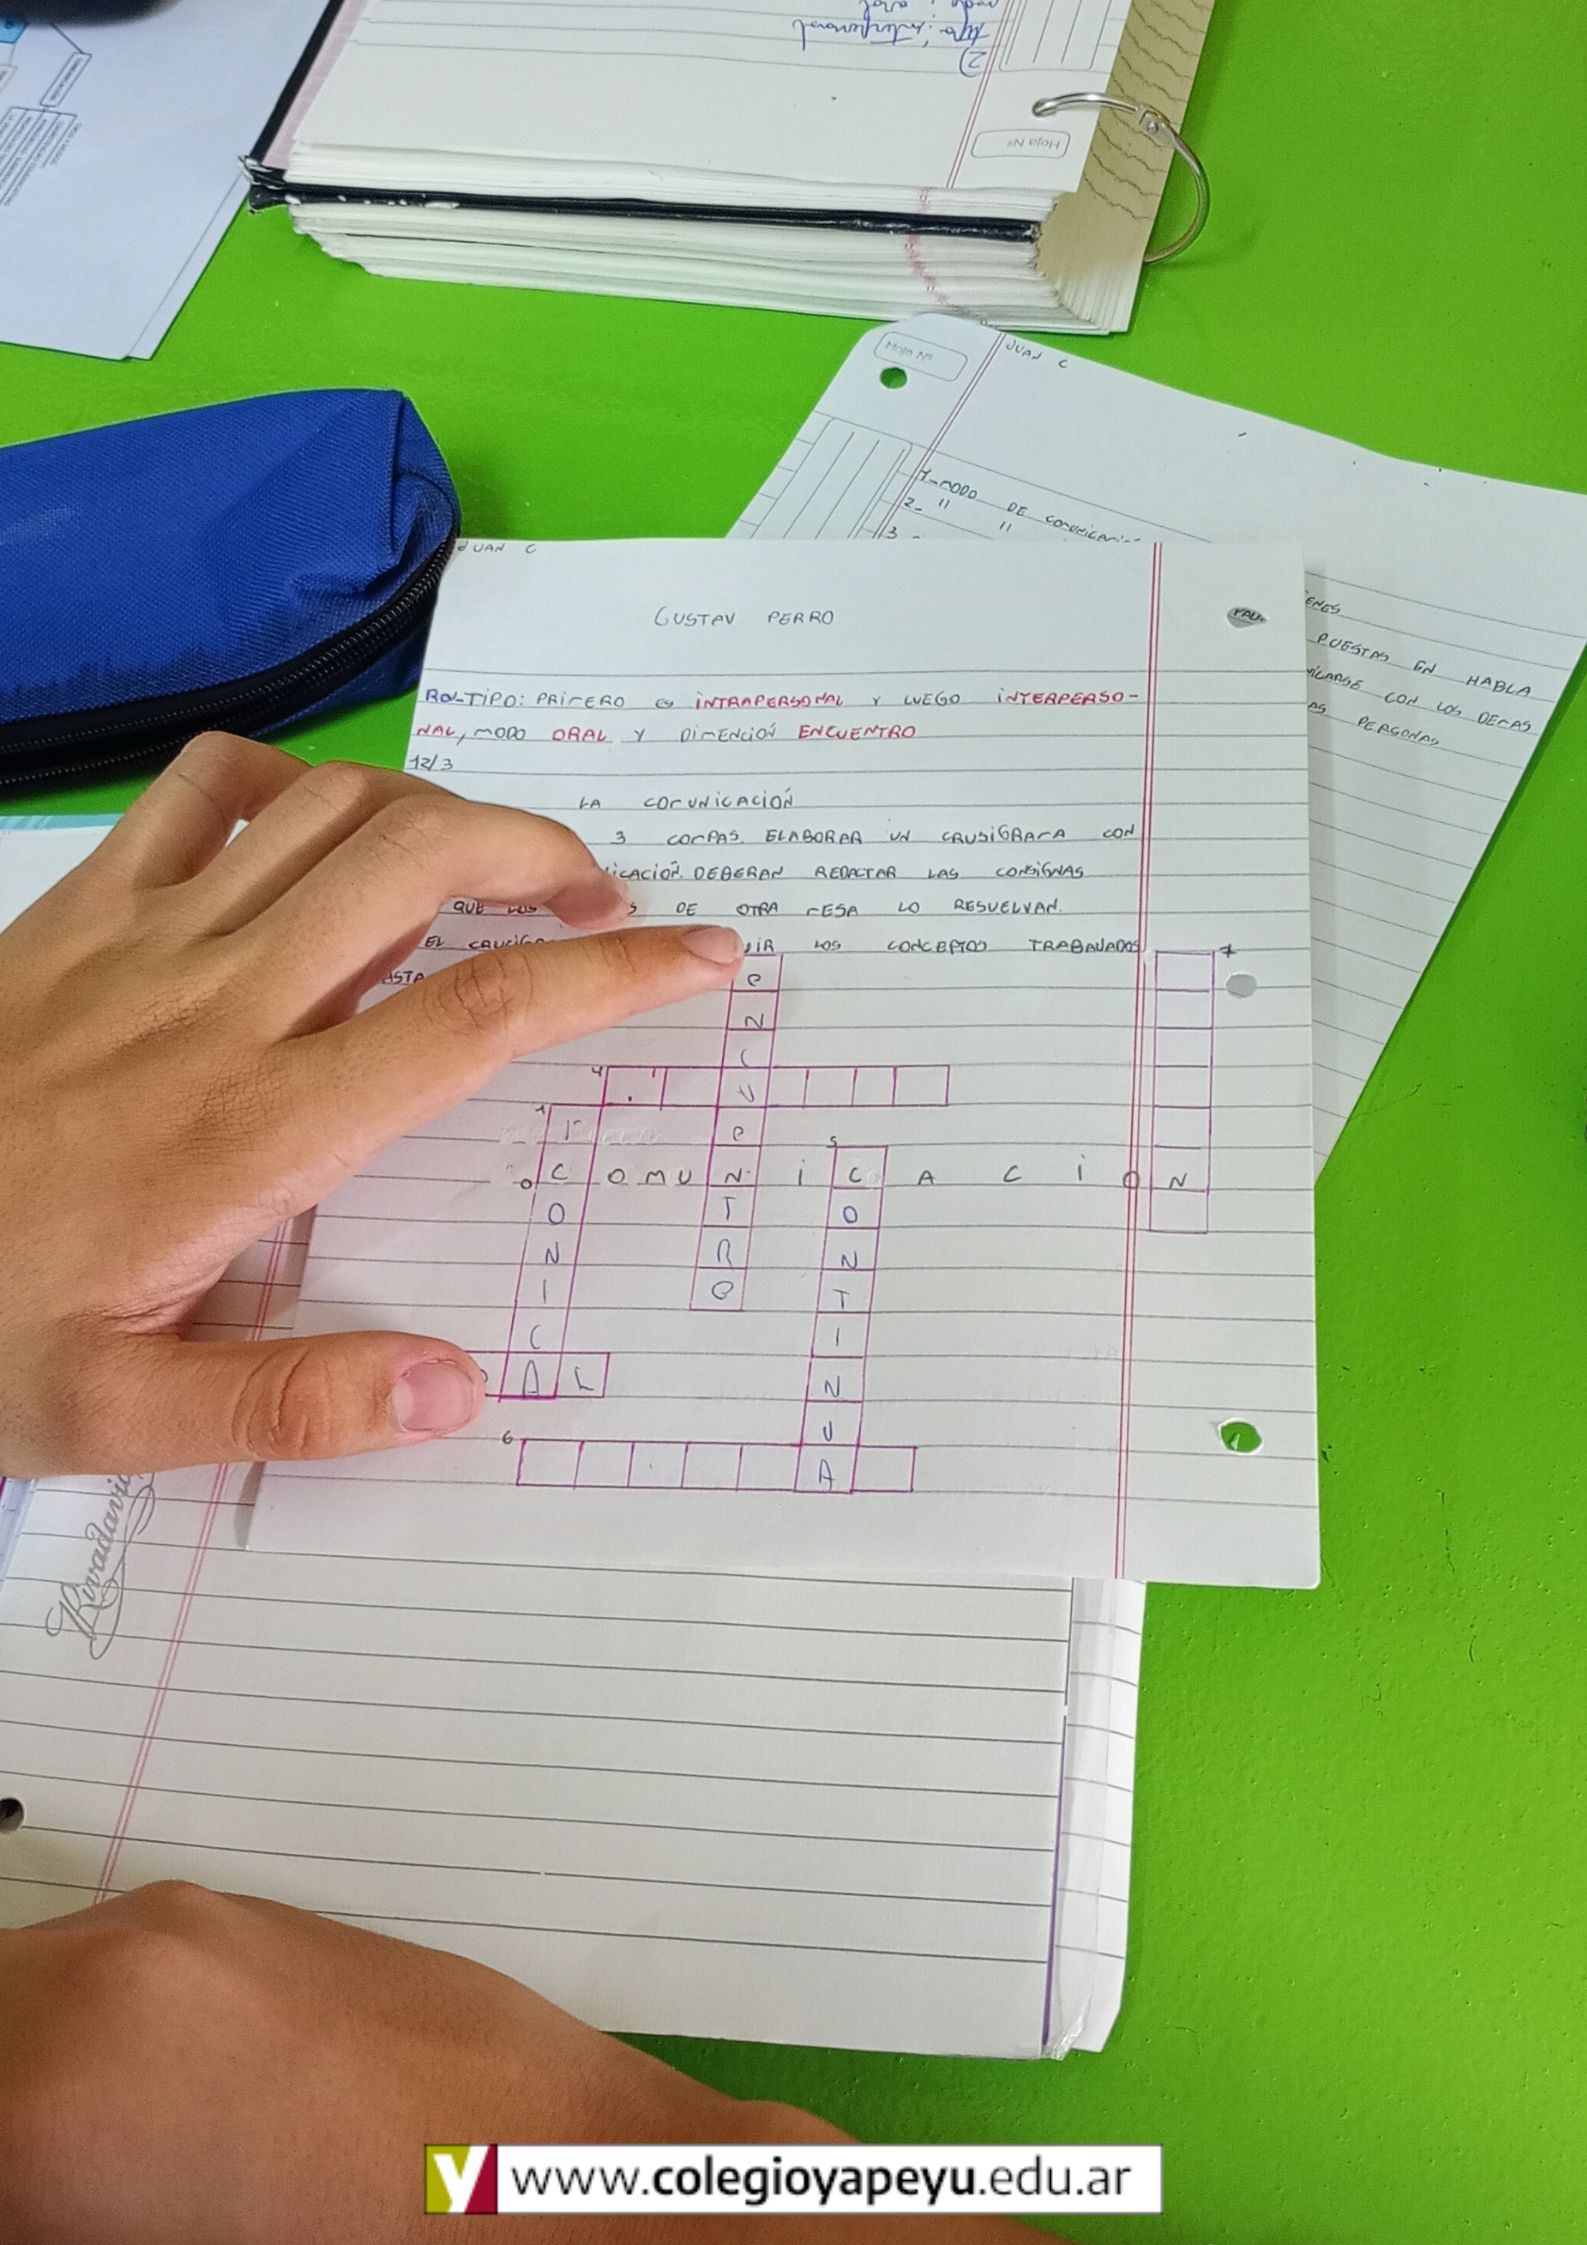 2)
tipo: interpersonal
modo: oral
Hoja Nº
Hoja Nº
JUAN C
1-MODO DE COMUNICACIÓN
2- " "
3
PUESTAS EN HABLA
CON LOS DEMAS
PERSONAS
JUAN C
GUSTAV PERRO
ROL-TIPO: PRIMERO ES INTRAPERSONAL Y LUEGO INTERPERSO-
NAL, MODO ORAL Y DIMENCIÓN ENCUENTRO
12/3
LA COMUNICACIÓN
3 COMPAS. ELABORAR UN CRUSIGRAMA CON
DEBERAN REDACTAR LAS CONSIGNAS
QUE LOS DE OTRA MESA LO RESUELVAN.
EL LOS CONCEPTOS TRABAJADOS
7
4
1
5
COMUNICACION
ICONICA
ENCUENTRO
CONTINUA
AL
6
Rivadavia
www.colegioyapeyu.edu.ar